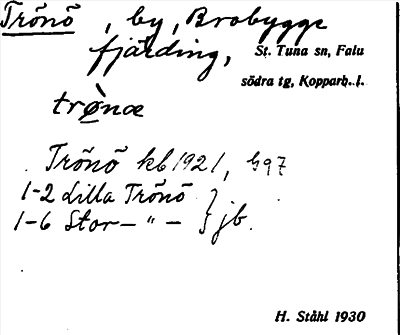 Trönö, by, Brobygge
fjärding, St. Tuna sn, Falu
södra tg, Kopparb. l.
trø̀næ
Trönö kb 1921, G97
1-2 Lilla Trönö } jb.
1-6 Stor- " -
H. Ståhl 1930